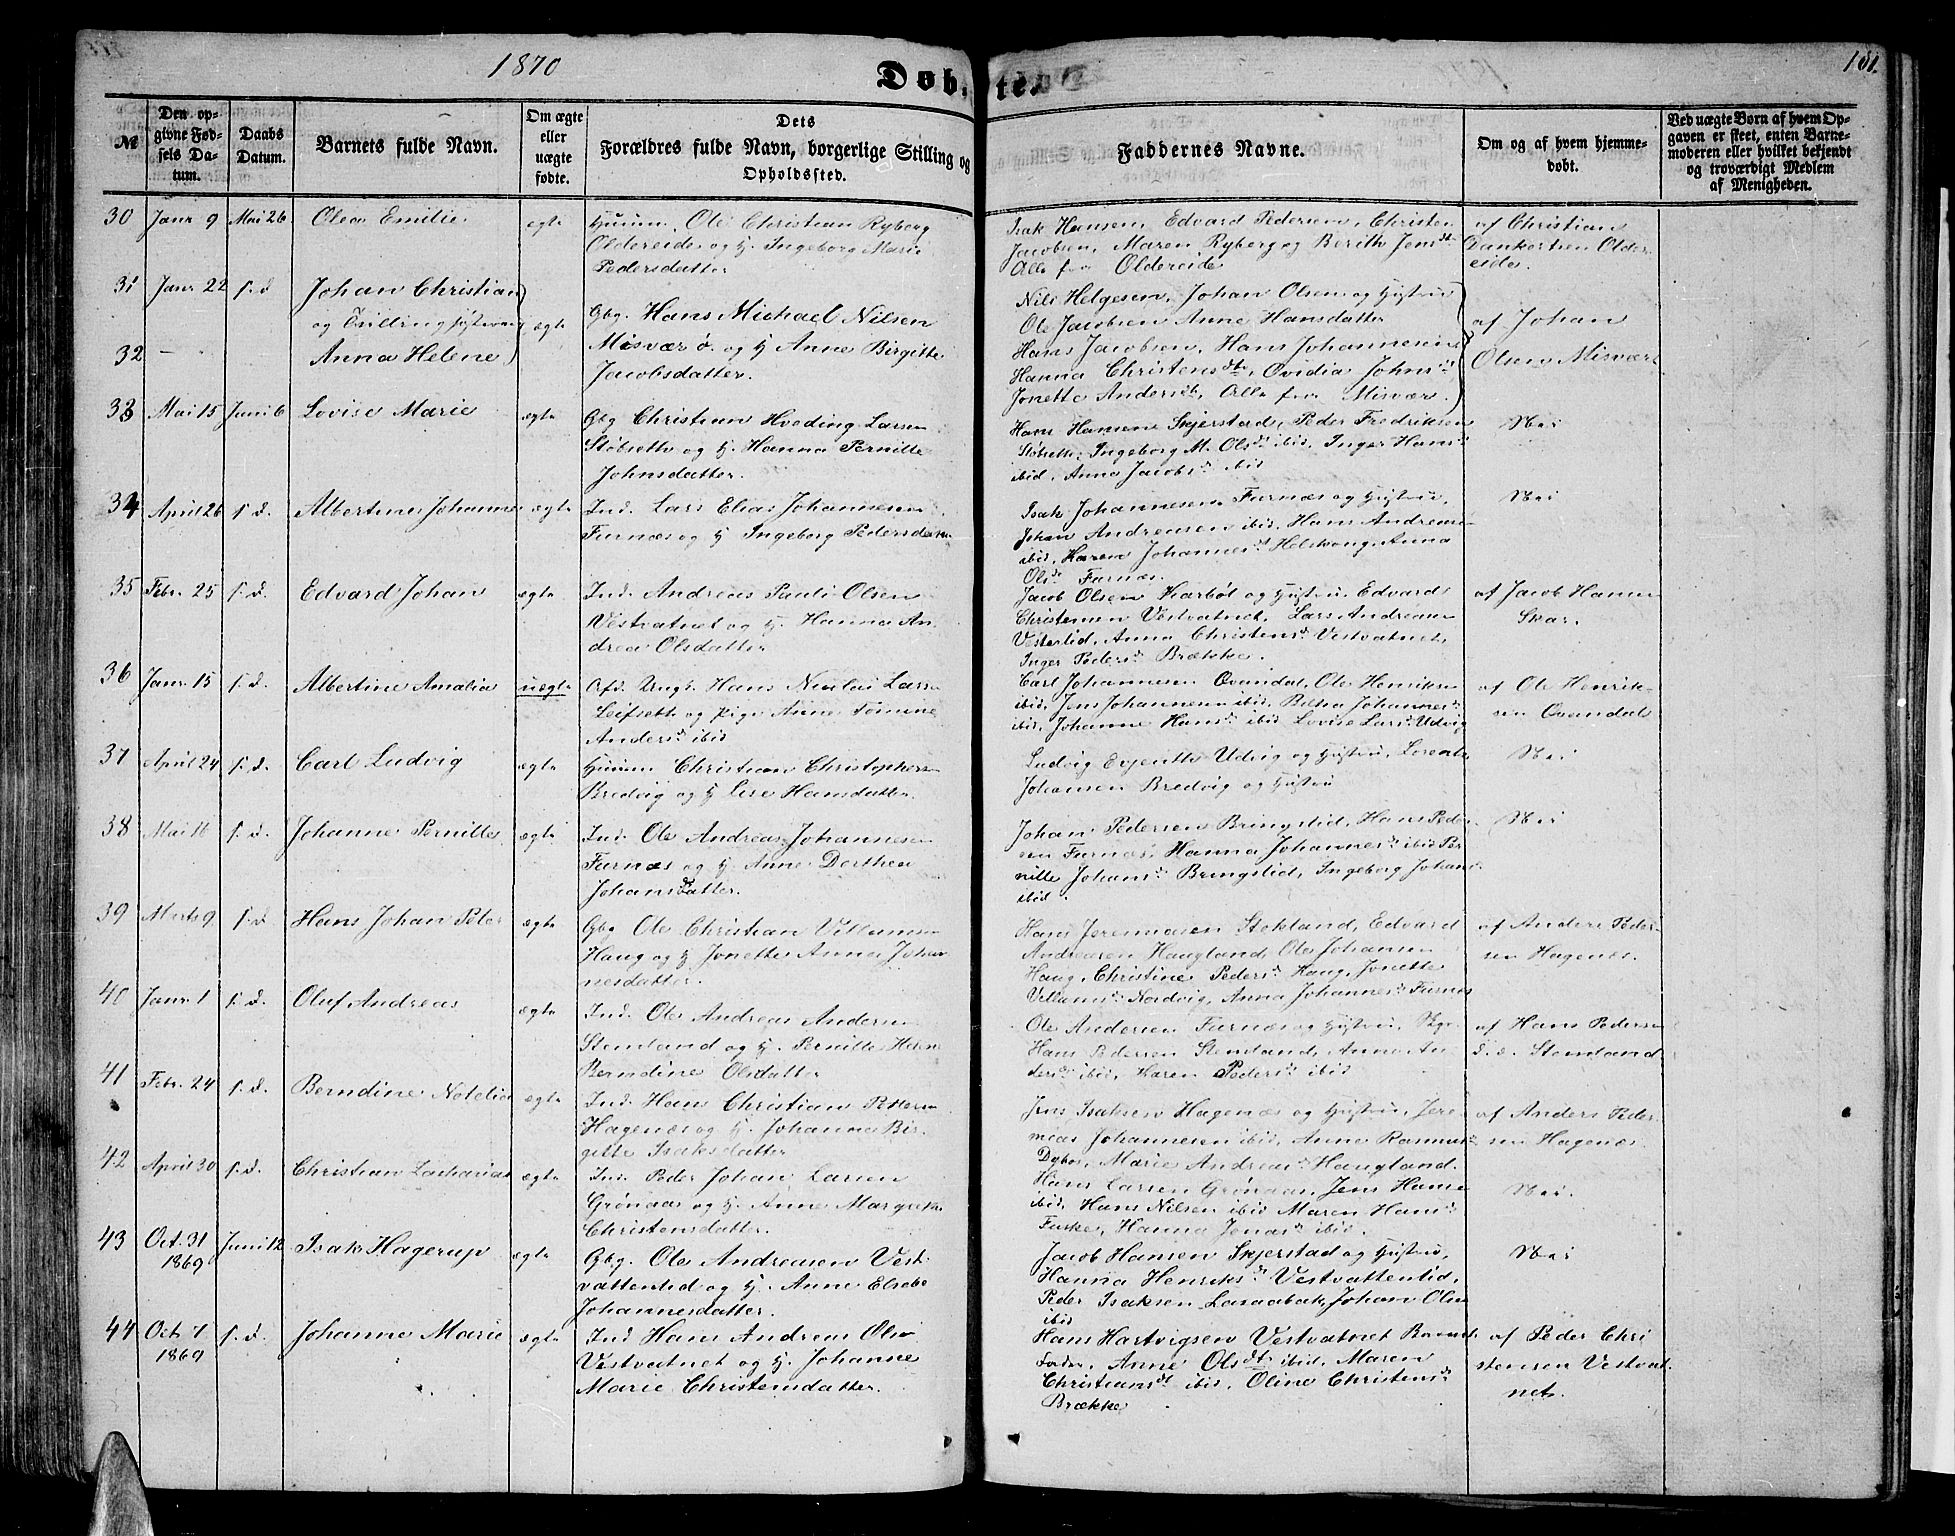 1870
Døbte.
181.
№
Den opgivne Fødsels Datum.
Daabs Datum.
Barnets fulde Navn.
Om ægte eller uægte fødte.
Dets Forældres fulde Navn, borgerlige Stilling og Opholdssted.
Faddernes Navne.
Om og af hvem hjemmedøbt.
Ved uægte Børn af hvem Opgaven er skeet, enten Barnemoderen eller hvilket bekjendt og troværdigt Medlem af Menigheden.
30 Janr 9 Mai 26 Olea Emilie ægte Huusm. Ole Christian Ryberg
Oldereide og H. Ingeborg Marie
Pedersdatter
Isak Hansen, Edvard Pedersen, Christen
Jacobsen, Maren Ryberg og Berith Jensdt
Alle fra Oldereide
af Christian
Dankertsen Older
eide.
31 Janr 22 s. d. Johan Christian
og Tvilling søsteren
32 — Anna Helene
ægte
Gbg. Hans Michael Nilsen
Misvær ø. og H Anne Birgitte
Jacobsdatter.
Nils Helgesen, Johan Olsen og Hustru
Ole Jacobsen Anne Hansdatter
Hans Jacobsen, Hans Johannesen
Hanna Christensdt, Ovidia Johnsd
Jonette Andersdt, Alle fra Misvær.
af Johan
Olsen Misvær
33 Mai 15 Juni 6 Lovise Marie ægte Gbg Christian Hveding Larsen
Støbseth og H. Hanna Pernille
Johnsdatter.
Hans Hansen Skjerstad, Peder Fredriksen
Støbseth, Ingeborg M. Olsdt ibid, Inger Hansd
ibid, Anna Jacobsd ibid
Nei
34 April 26 s. d. Albertine Johanne ægte Ind. Lars Elias Johannesen
Furnæs og H Ingeborg Pedersdatter
Isak Johannesen Furnæs og Hustru,
Johan Andreasen ibid, Hans Andreas
ibid, Karen Johannesd Anna
Olsdt Furnæs.
Nei
35 Febr. 25 s. d. Edvard Johan ægte Ind. Andreas Pauli Olsen
Vestvatnet og H. Hanna An
drea Olsdatter
Jacob Olsen Karbøl og Hustru, Edvard
Christensen Vestvatnet, Lars Andreasen
Vesterlid, Anna Christensd Vestvatnet,
Inger Pedersd Brække.
af Jacob Hansen
Skar.
36 Janr. 15 s. d. Albertine Amalia uægte Hans Nicolai Larsen
Leifseth og Pige Anne
Andersd ibid
Carl Johannesen Ovandal, Ole Henriksen
ibid, Jens Johannesen ibid, Johannesd
ibid, Johanne Hansd ibid Lovise Larsd Udvig
af Ole Henrik-
sen Ovandal
37 April 24 s. d. Carl Ludvig ægte Huusm Christian Christophersen
Bredvig og H Lise Hansdatter.
Ludvig Evjenth Udvig og Hustru, Lorents
Johansen Bredvig og Hustru
Nei
38 Mai 16 s. d. Johanne Pernille ægte Ind. Ole Andreas Johannesen
Furnæs og H Anne Dorthea
Johansdatter.
Johan Pedersen Bringslid, Hans Peder-
sen Furnæs, Hanna Johannesd ibid Per
nille Johansd Bringslid, Ingeborg Johansd
ibid.
Nei
39 Marts 9 s. d. Hans Johan Peter ægte Gbg Ole Christian Villumsen
Haug og H Jonette Anna Johan
nesdatter.
Hans Jeremiasen Stokland, Edvard
Andreasen Haugland Ole Johansen
Haug, Christine Pedersd Haug, Jonette
Villumsd Nordvig, Anna Johannesd Furnæs
af Anders Peder-
sen Hagenæs.
40 Janr. 1 s. d. Oluf Andreas ægte Ind. Ole Andreas Andersen
Stemland og H. Pernille Helene
Berndine Olsdatter
Ole Andersen Furnæs og Hustru,
Hans Pedersen Stemland, Anne An
dersd ibid, Karen Pedersd ibid
af Hans Pedersen
Stemland
41 Febr. 24 s. d. Berndine Notelia ægte Ind. Hans Christian Pettersen
Hagenæs og H. Johanna Bir
gitte Isaksdatter
Jens Isaksen Hagenæs og Hustru, Jere
mias Johannesen ibid, Anna Rasmusd
Marie Andreasd Haugland.
af Anders Peder
sen Hagenæs
42 April 30 s. d. Christian Zacharias ægte Ind. Peder Johan Larsen
Grønaas og H. Anne Margrethe
Christensdatter.
Hans Larsen Grønaas, Jens Hansen
ibid, Hans Nilsen ibid Maren Hansd
Fuske, Hanna Jonasd ibid.
Nei.
43 Oct. 31
1869
Juni 12 Isak Hagerup ægte Gbg. Ole Andreasen Vest
vattenlid og H. Anne Elsebe
Johannesdatter.
Jacob Hansen Skjerstad og Hustru,
Hanna Henriksd Vestvattenlid,
Peder Isaksen Johan Olsen
ibid
Nei
44 Oct. 7
1869
s. d. Johanne Marie ægte Ind Hans Andreas Olsen
Vestvatnet og H. Johanne
Marie Christensdatter.
Hans Hartvigsen Vestvatnet
Anne Olsdt ibid, Maren
Christiansdt ibid, Oline Christensd
Brække
af Peder Chri
stensen Vestvat
net.